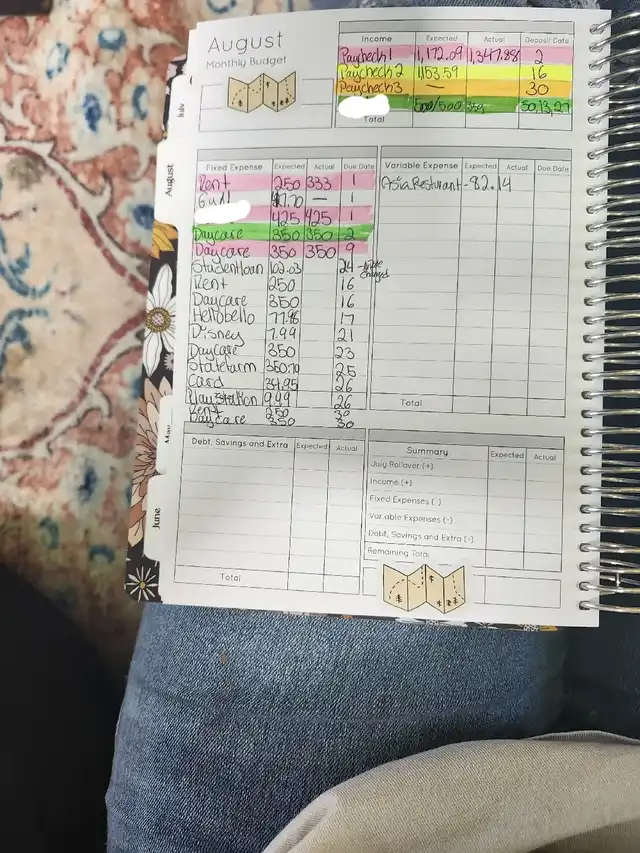 August
Monthly Budget
Income Expected Actual Deposit Date
Paycheck 1 1,172.09 1,347.88 2
Paycheck 2 1,153.59 16
Paycheck 3 — 30
500/500 30,13,27
Total
July
August
May
June
Fixed Expense Expected Actual Due Date
Rent 250 333 1
— 1
425 425 1
Daycare 350 350 2
Daycare 350 350 9
Student loan 102.03 24
Rent 250 16
Daycare 350 16
Hellobello 77.98 17
Disney 7.99 21
Daycare 350 23
Statefarm 25
Card 34.95 26
Playstation 9.49 26
Rent 250 30
Daycare 350 30
Variable Expense Expected Actual Due Date
Asia Resturant -82.14
Total
Debt, Savings and Extra Expected Actual
Total
Summary Expected Actual
July Rollover (+)
Income (+)
Fixed Expenses (-)
Variable Expenses (-)
Debt, Savings and Extra (-)
Remaining Total